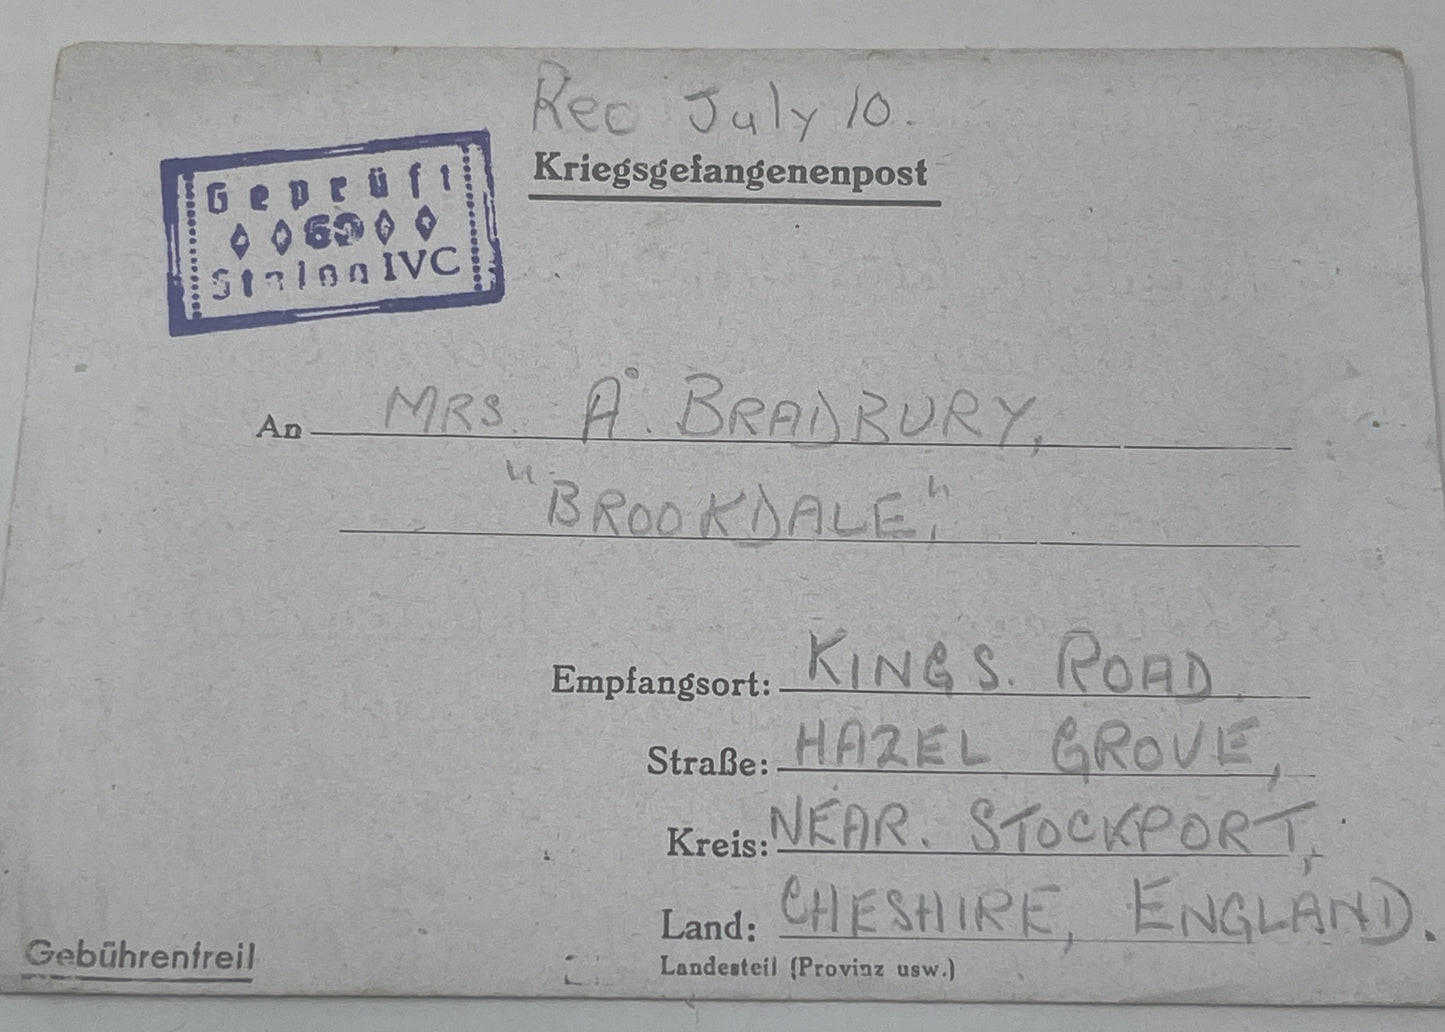 Rec July 10.
Kriegsgefangenenpost
Geprüft
Stalag IVC
An MRS. A. BRADBURY,
"BROOKDALE,"
Empfangsort: KINGS. ROAD
Straße: HAZEL GROVE,
Kreis: NEAR. STOCKPORT,
Land: CHESHIRE, ENGLAND.
Landesteil (Provinz usw.)
Gebührenfrei!